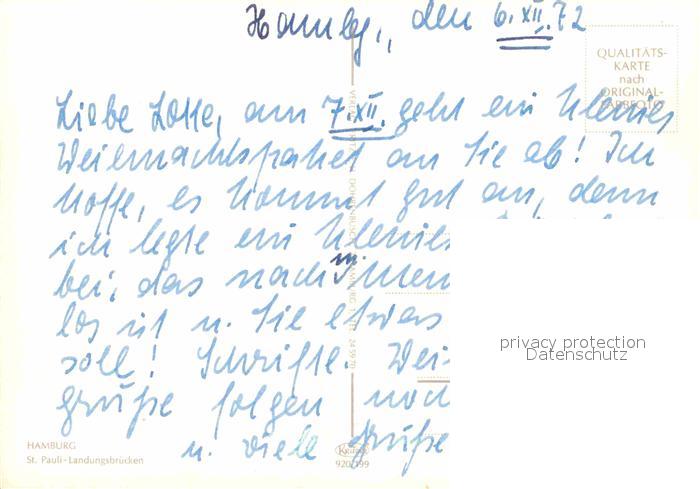 Hambg., den 6. XII. 72
QUALITÄTS-
KARTE
nach
ORIGINAL-
FARBFOTO
Liebe Lotte, am 7. XII. geht ein kleines
Weihnachtspaket an Sie ab! Ich
hoffe, es kommt gut an, denn
ich legte ein kleines
bei, das nach
los ist u. Sie etwas
soll! Schriftl. Wei-
grüße folgen noch
u. viele Grüße
privacy protection
Datenschutz
HAMBURG
St. Pauli-Landungsbrücken
Krüger
920/199